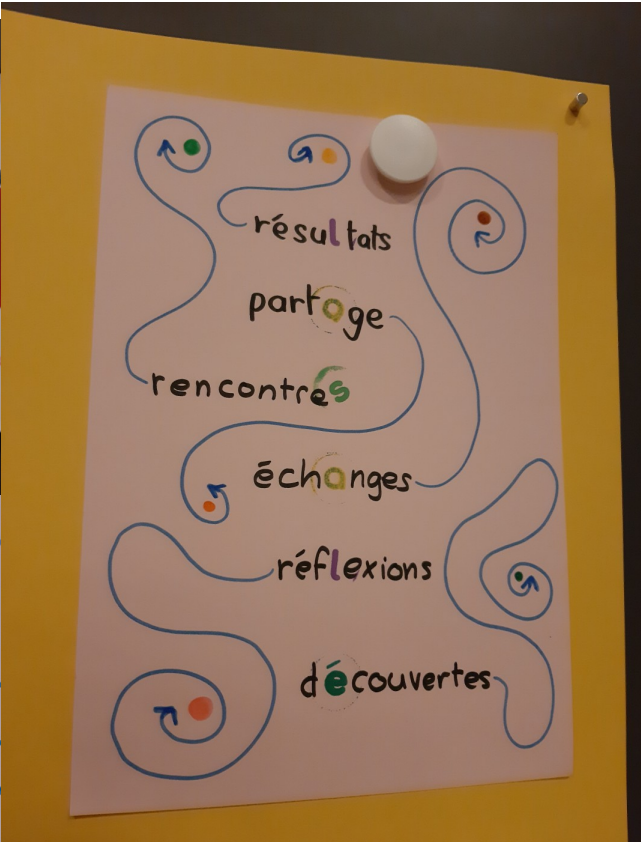 résultats
partage
rencontres
échanges
réflexions
découvertes